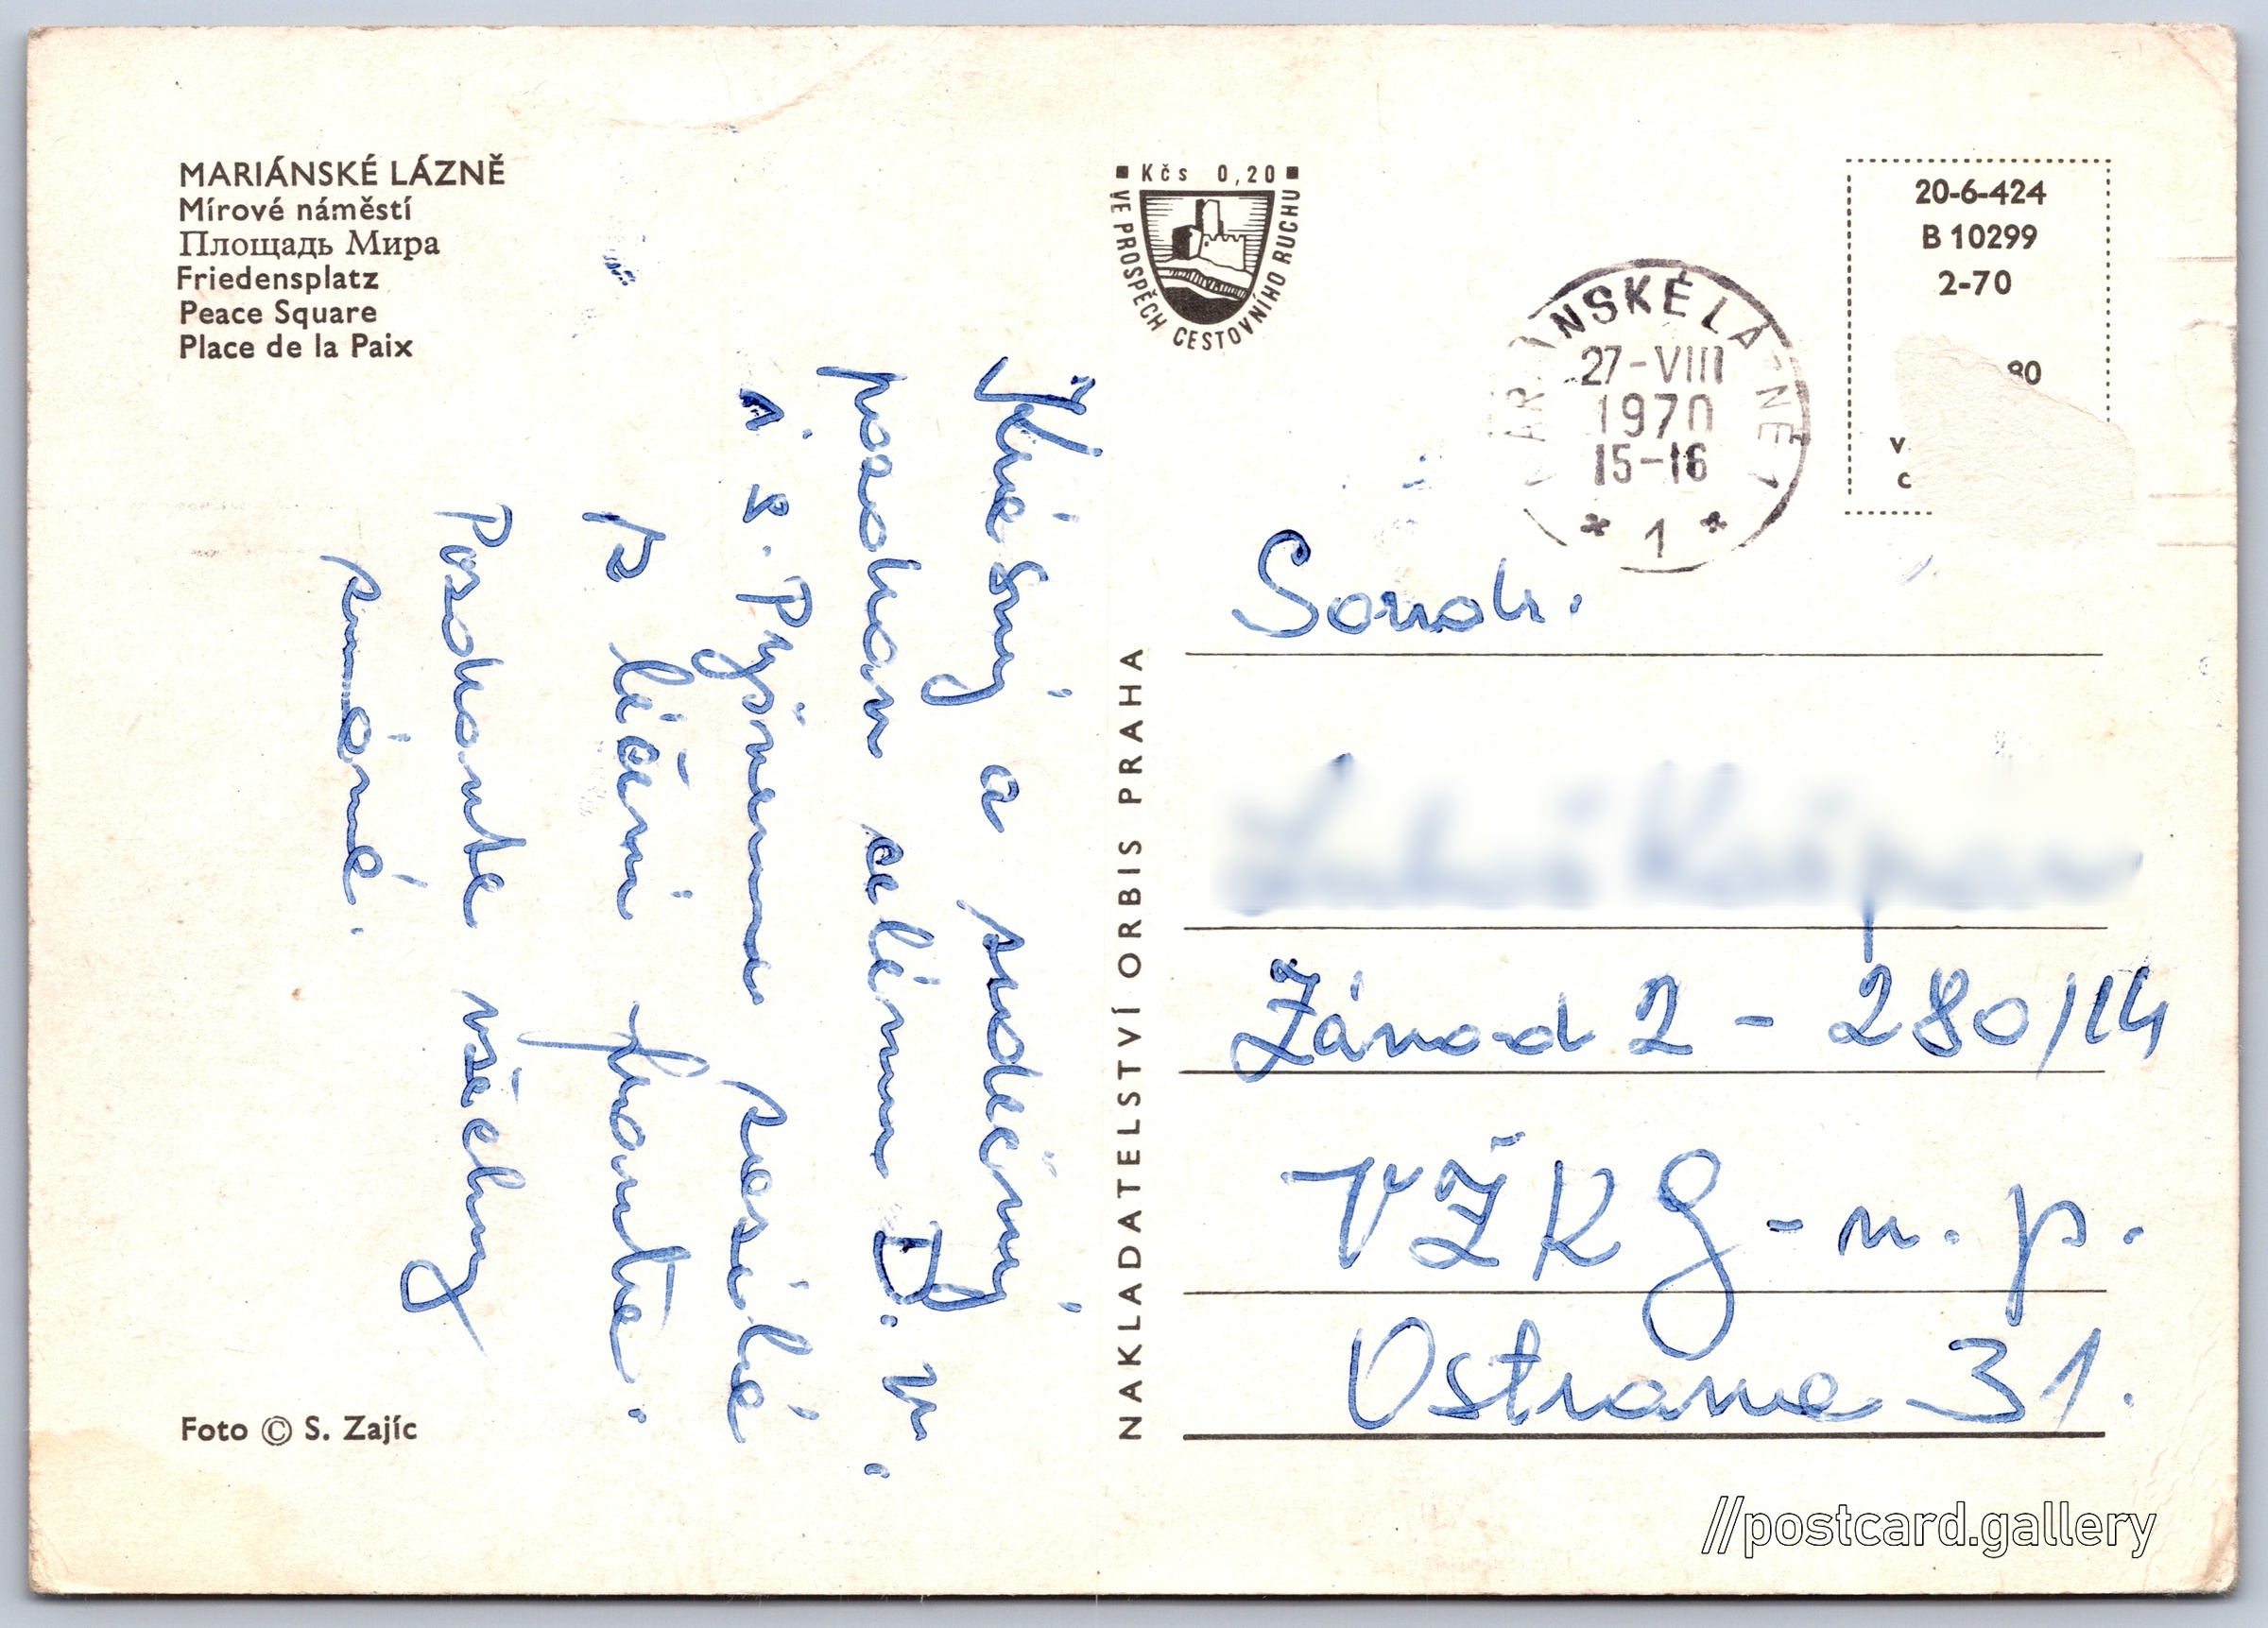 MARIÁNSKÉ LÁZNĚ
Mírové náměstí
Площадь Мира
Friedensplatz
Peace Square
Place de la Paix
Kčs 0,20
VE PROSPĚCH CESTOVNÍHO RUCHU
20-6-424
B 10299
2-70
80
v
c
MARIÁNSKÉ LÁZNĚ 1
27-VIII
1970
15-16
* 1 *
a srdečný
pozdrav celému D. V.
z lázní
Pozdravte všechny
známé.
Soudr.
Závod 2 - 280/14
VŽKG - n. p.
Ostrava 31.
NAKLADATELSTVÍ ORBIS PRAHA
Foto © S. Zajíc
//postcard.gallery